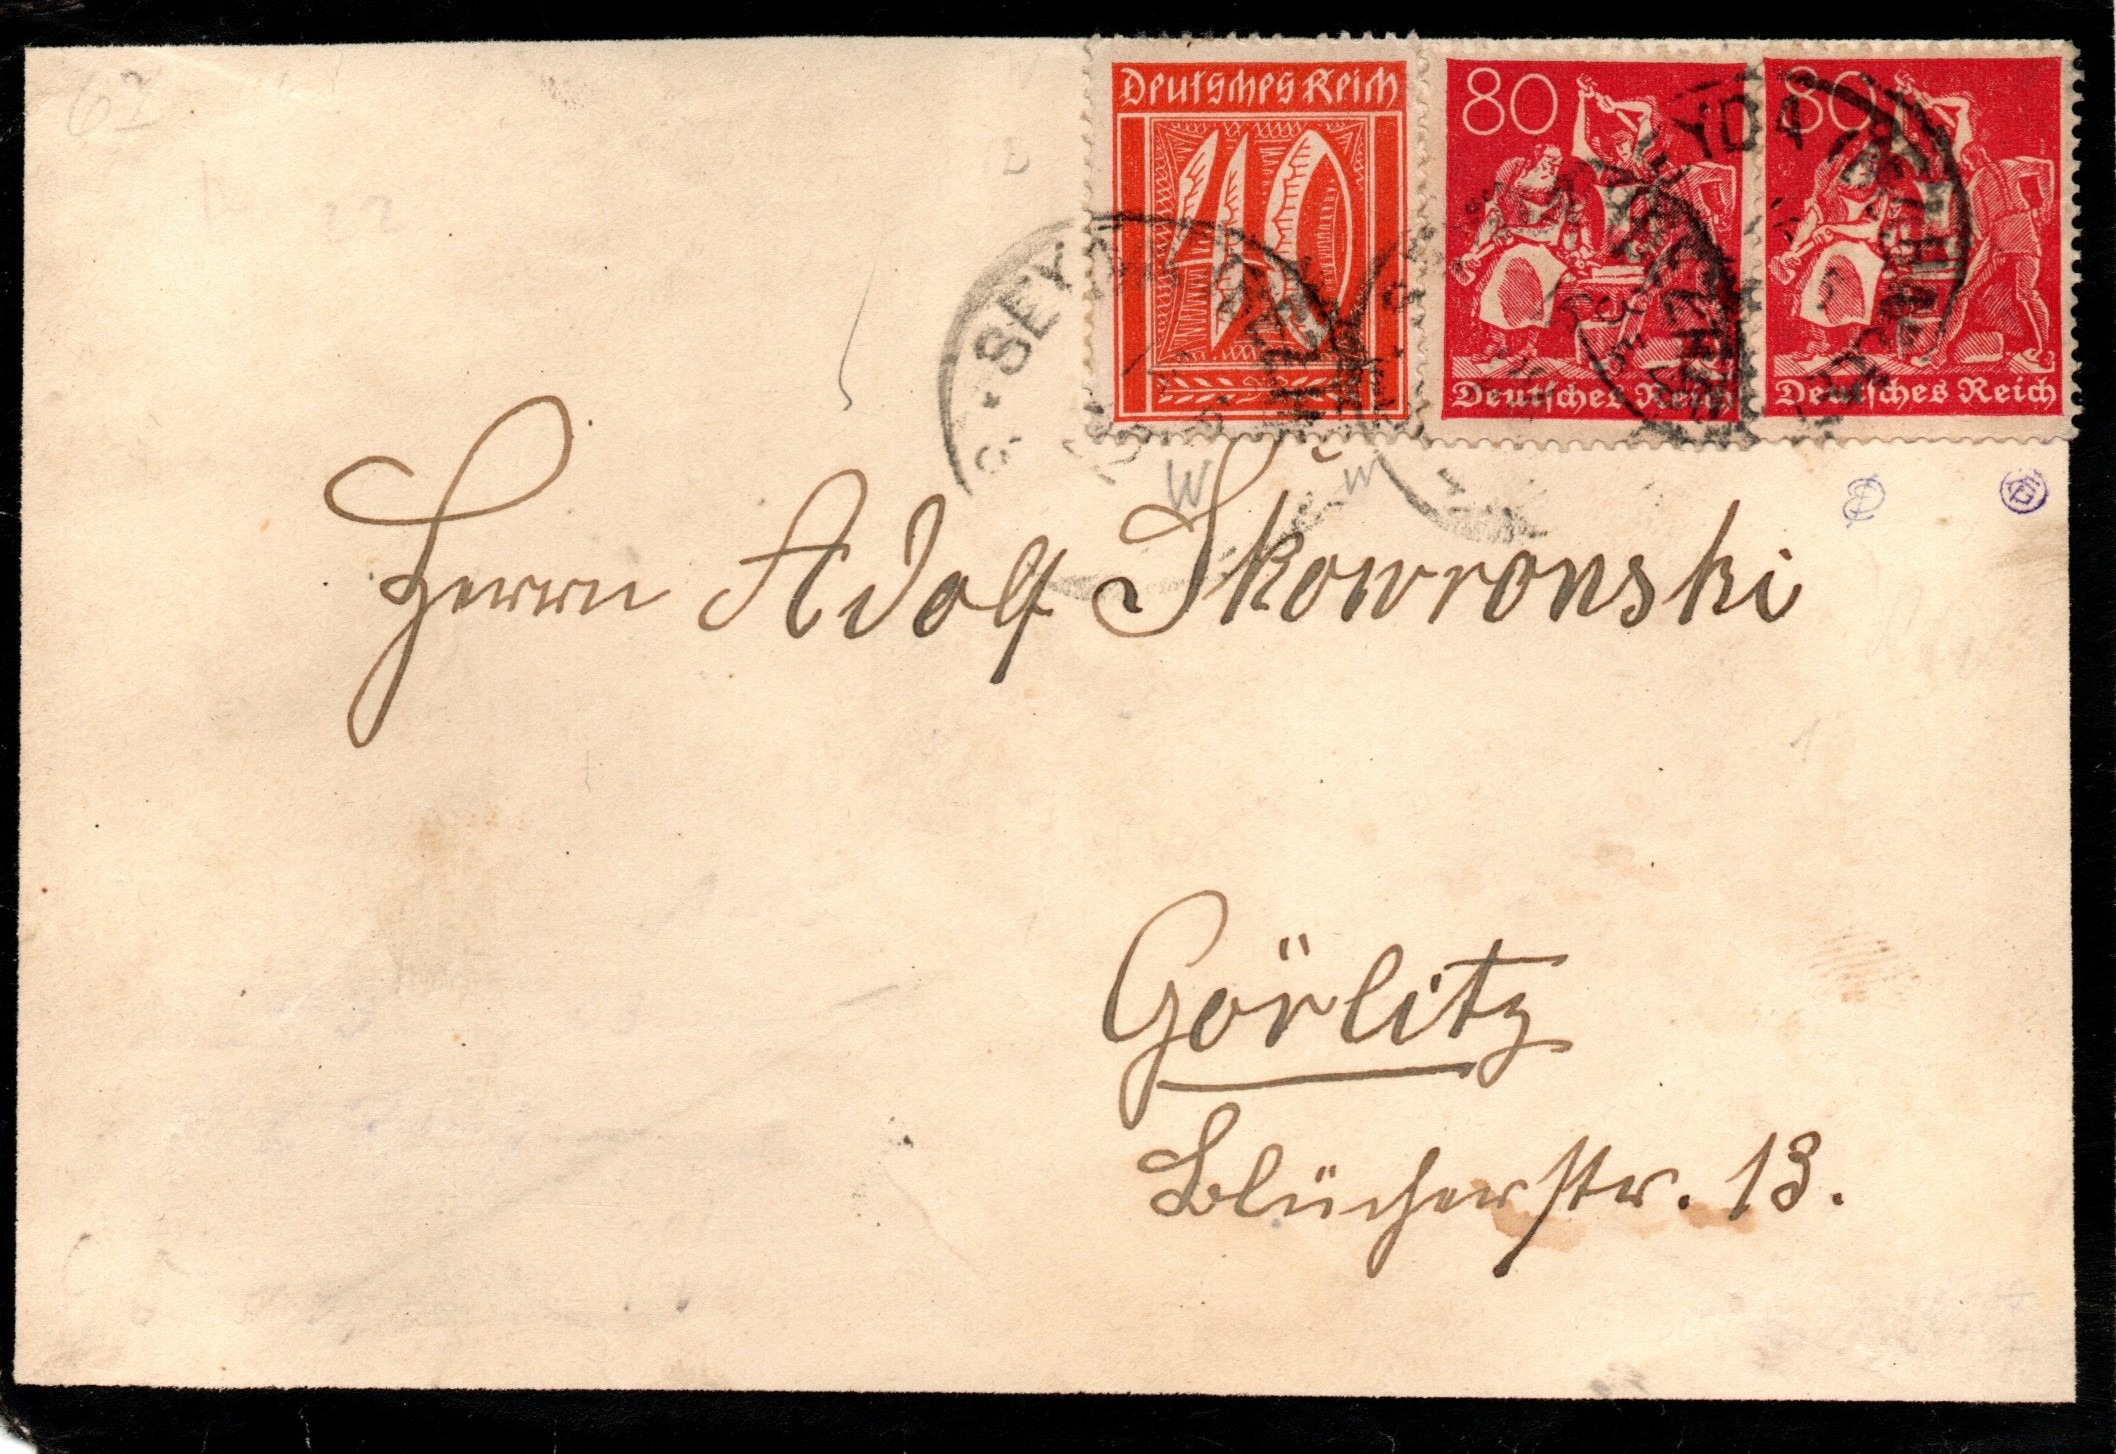 62
Deutsches Reich
40
80
Deutsches Reich
80
Deutsches Reich
SEY
YDA
W
W
Herrn Adolf Skowronski
Görlitz
Blücherstr. 13.